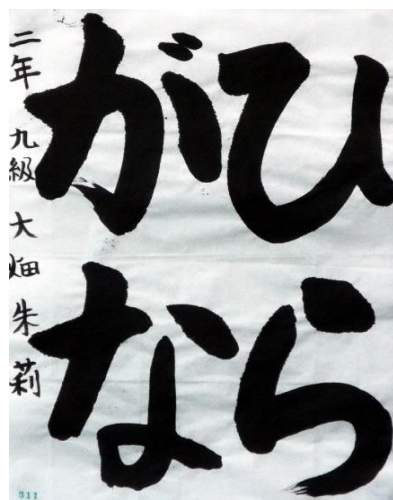 ひら
がな
二年 九級 大畑朱莉
311